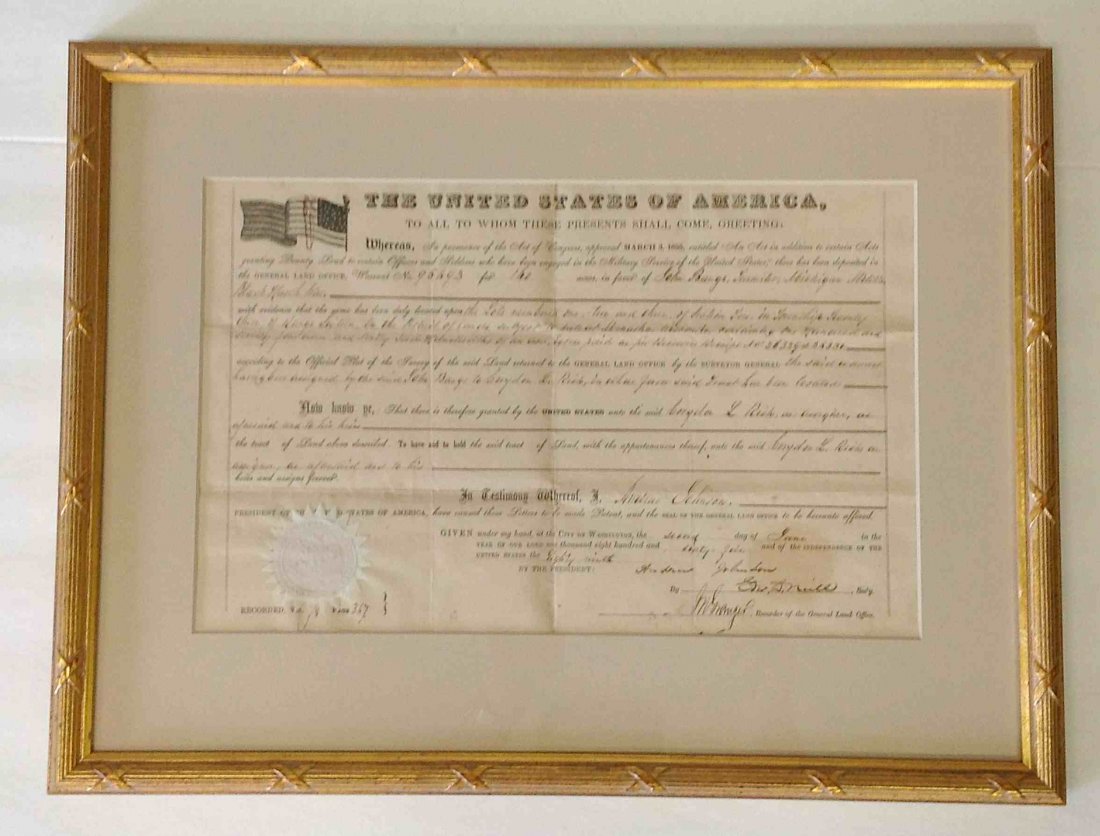 THE UNITED STATES OF AMERICA,
TO ALL TO WHOM THESE PRESENTS SHALL COME, GREETING:
Whereas, In pursuance of the Act of Congress, approved MARCH 3, 1855, entitled "An Act in addition to certain Acts
granting Bounty Land to certain Officers and Soldiers who have been engaged in the Military Service of the United States," there has been deposited in
the GENERAL LAND OFFICE, Warrant No. 95693 for 160 acres, in favor of John Bangs, Michigan Militia,
Black Hawk War,
with evidence that the same has been duly located upon the Lots numbered one, two and three, of Section Ten, in Township Twenty
of Range in the District of Lands subject to sale at Menasha Wisconsin containing one hundred and
seventy and of an acre, as per Receiver's Receipt No
according to the Official Plat of the Survey of the said Land returned to the GENERAL LAND OFFICE by the SURVEYOR GENERAL the said warrant
having been assigned by the said John Bangs to L. Rich, in whose favor said Tract has been located
Now know ye, That there is therefore granted by the UNITED STATES unto the said L. Rich, as assignee, as
aforesaid and to his heirs
the tract of Land above described. To have and to hold the said tract of Land, with the appurtenances thereof, unto the said L. Rich as
assignee, as aforesaid and to his
heirs and assigns forever.
In Testimony Whereof, I, Andrew Johnson,
PRESIDENT OF THE UNITED STATES OF AMERICA, have caused these Letters to be made Patent, and the SEAL OF THE GENERAL LAND OFFICE to be hereunto affixed.
GIVEN under my hand, at the CITY OF WASHINGTON, the second day of June in the
YEAR OF OUR LORD one thousand eight hundred and sixty five and of the INDEPENDENCE OF THE
UNITED STATES the Eighty ninth
BY THE PRESIDENT: Andrew Johnson
By , Sec'y.
RECORDED, Vol. Page 367 }
, Recorder of the General Land Office.